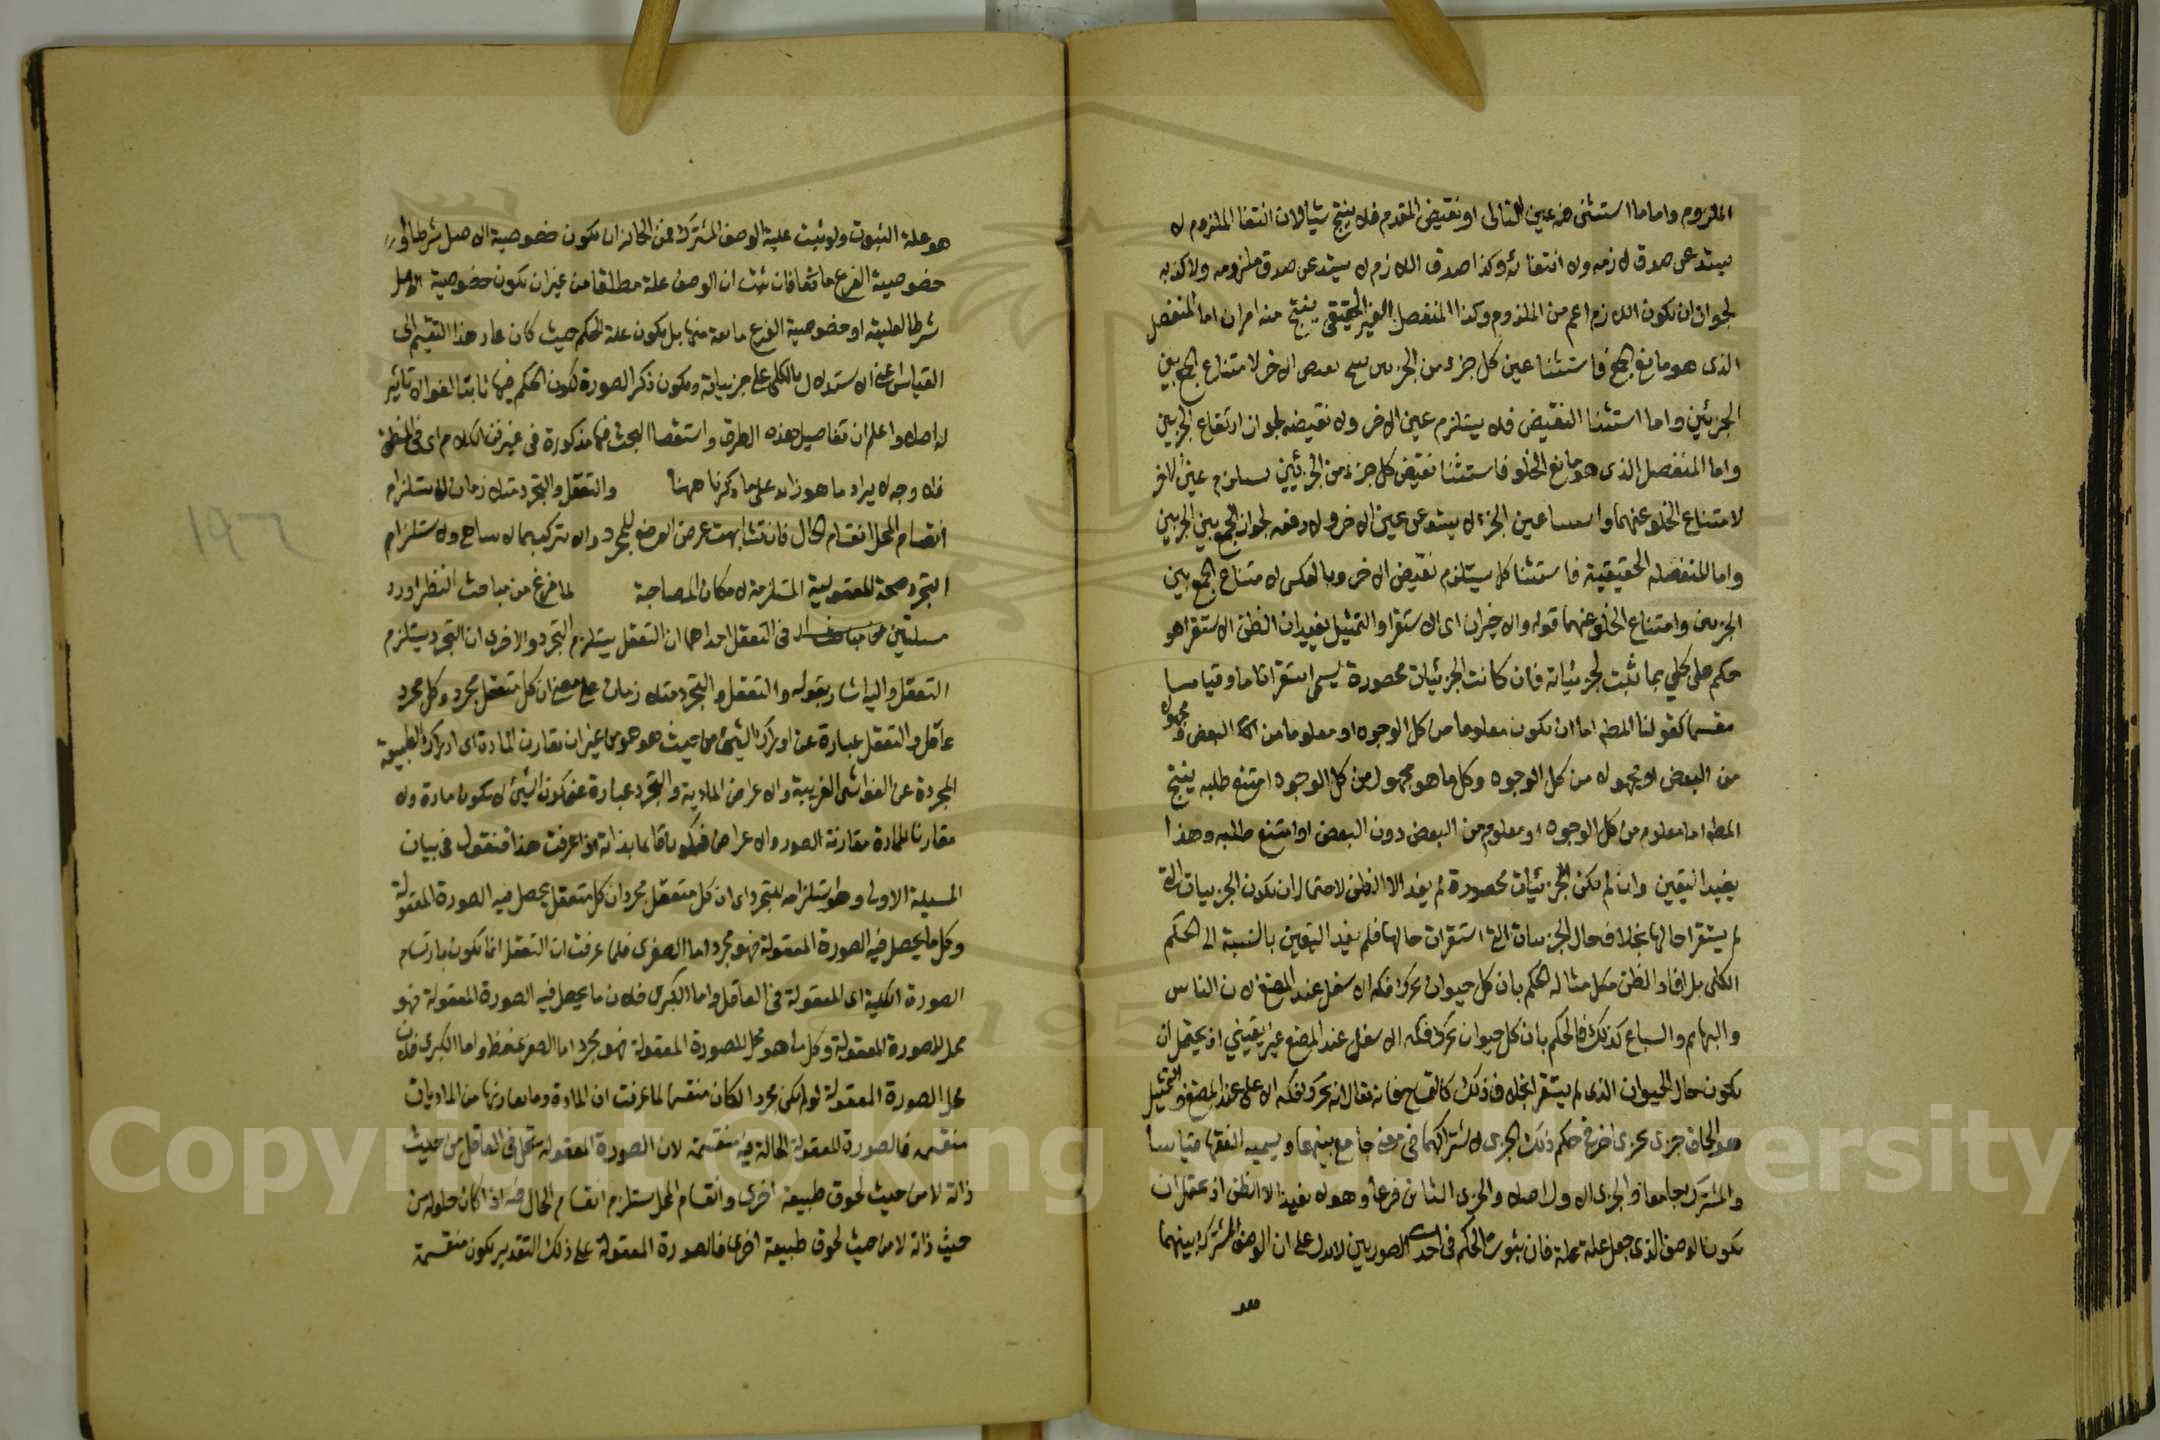 الملزوم واما ما استثنى فيه عين التالى او نقيض المقدم فلا ينتج شيأ لان انتفا الملزوم لا
يستدعى صدق لازمه ولا انتفائه وكذا صدق اللازم لا يستدعى صدق ملزومه ولا كذبه
لجواز ان يكون اللازم اعم من الملزوم وكذا المنفصل الغير الحقيقى ينتج منه امران اما المنفصل
الذى هو مانع الجمع فاستثنا عين كل جزء من الجزئين ينتج نقيض الاخر لامتناع الجمع بين
الجزئين واما استثنا النقيض فلا يستلزم عين الاخر ولا نقيضه لجواز ارتفاع الجزئين
واما المنفصل الذى هو مانع الخلو فاستثنا نقيض كل جزء من الجزئين يستلزم عين الاخر
لامتناع الخلو عنهما واستثنا عين الجزء لا يستدعى عين الاخر ولا رفعه لجواز الجمع بين الجزئين
واما المنفصلة الحقيقية فاستثنا كل يستلزم نقيض الاخر وبالعكس لامتناع الجمع بين
الجزئين وامتناع الخلو عنهما قوله والاخيران اى الاستقرا والتمثيل يفيدان الظن الاستقرا هو
حكم على كلي بما ثبت لجزئياته فان كانت الجزئيات محصورة يسمى استقرا تاما وقياسا
مقسما كقولنا المطـ اما ان يكون معلوما من كل الوجوه او معلوما من البعض ومجهولا
من البعض او مجهولا من كل الوجوه وكل ما هو مجهول من كل الوجوه امتنع طلبه ينتج
المطـ اما معلوم من كل الوجوه او معلوم من البعض دون البعض او امتنع طلبه وهذا
يفيد اليقين وان لم تكن الجزئيات محصورة لم يفد الا الظن لاحتمال ان يكون الجزئيات التى
لم يستقرا حالها بخلاف حال الجزئيات التى استقرات حالها فلم يفد اليقين بالنسبة الى الحكم
الكلى بل افاد الظن مثاله الحكم بان كل حيوان يحرك فكه الاسفل عند المضغ لان الناس
والبهائم والسباع كذلك فالحكم بان كل حيوان يحرك فكه الاسفل عند المضغ غير يقيني اذ يحتمل ان
يكون حال الحيوان الذى لم يستقرا بخلاف ذلك كالتمساح فانه يقال انه يحرك فكه الاعلى عند المضغ والتمثيل
هو الحاق جزى بجزى اخر فى حكم ذلك الجزى لاشتراكهما فى معنى جامع بينهما ويسميه الفقها قياسا
والمشترك جامعا والجزى الاول اصلا والجزى الثانى فرعا وهو لا يفيد الا الظن اذ يحتمل ان
يكون الوصف الذى جعل علة علة فان ثبوت الحكم فى احدى الصورتين لا يدل على ان الوصف المشترك بينهما
هو علة الثبوت ولو ثبت علية الوصف المشترك فمن الجائز ان يكون خصوصية الاصل شرطا او
خصوصية الفرع مانعا فان ثبت ان الوصف علة مطلقا من غير ان يكون خصوصية الاصل
شرطا لعليته او خصوصية الفرع مانعة منها بل يكون علة الحكم حيث كان عاد هذا القسم الى
القياس اعنى الاستدلال بالكلى على جزئياته ويكون ذكر الصورة لكون الحكم فيها ثابتا لغوا لا تاثير
له اصلا واعلم ان تفاصيل هذه الطرق واستقصا البحث فيها مذكورة فى غير فن الكلام اى فى المنطق
فلا وجه لايراد ما هو زائد على ما ذكرنا ههنا والتعقل والتجرد متلازمان لاستلزام
انقسام المحل انقسام الحال فان تشابهت عرض الوضع للمجرد والا تركب مما لا يتناهى ولاستلزام
التجرد صحة المعقولية المستلزمة لامكان المصاحبة لما فرغ من مباحث النظر اورد
مسئلتين من مباحث فى التعقل احداهما ان التعقل يستلزم التجرد والاخرى ان التجرد يستلزم
التعقل واليه اشار بقوله والتعقل والتجرد متلازمان على معنى ان كل متعقل مجرد وكل مجرد
عاقل والتعقل عبارة عن ادراك الشئ من حيث هو هو من غير ان تقارن المادة اى ادراك الطبيعة
المجردة عن الغواشى الغريبة والاعراض المادية والتجرد عبارة عن كون الشئ لا يكون مادة ولا
مقارنا للمادة مقارنة الصور والاعراض فيكون قائما بذاته اذا عرفت هذا فنقول فى بيان
المسيلة الاولى وهو استلزامه للتجرد اى ان كل متعقل مجرد ان كل متعقل يحصل فيه الصورة المعقولة
وكل ما يحصل فيه الصورة المعقولة فهو مجرد اما الصغرى فلما عرفت ان التعقل انما يكون بارتسام
الصورة الكلية اى المعقولة فى العاقل واما الكبرى فلان ما يحصل فيه الصورة المعقولة فهو
محل للصورة المعقولة وكل ما هو محل للصورة المعقولة فهو مجرد اما الصغرى فظ واما الكبرى فلان
محل الصورة المعقولة لو لم يكن مجردا لكان منقسما لما عرفت ان المادة وما يقارنها من الماديات
منقسمة فالصورة المعقولة الحالة فيه منقسمة لان الصورة المعقولة تحل فى العاقل من حيث
ذاته لا من حيث لحوق طبيعة اخرى وانقسام المحل يستلزم انقسام الحال فيه اذا كان حلوله من
حيث ذاته لا من حيث لحوق طبيعة اخرى فالصورة المعقولة على ذلك التقدير يكون منقسمة
١٩٦
Copyright © King Saud University
1957